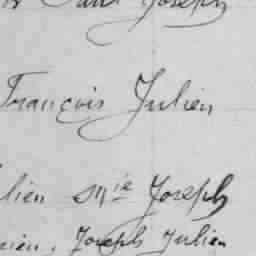 Joseph
François Julien
lien Mie Joseph
Joseph Julien